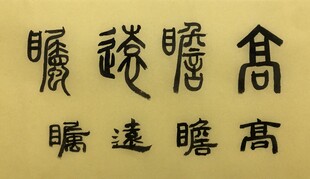 高瞻遠矚
高瞻遠矚